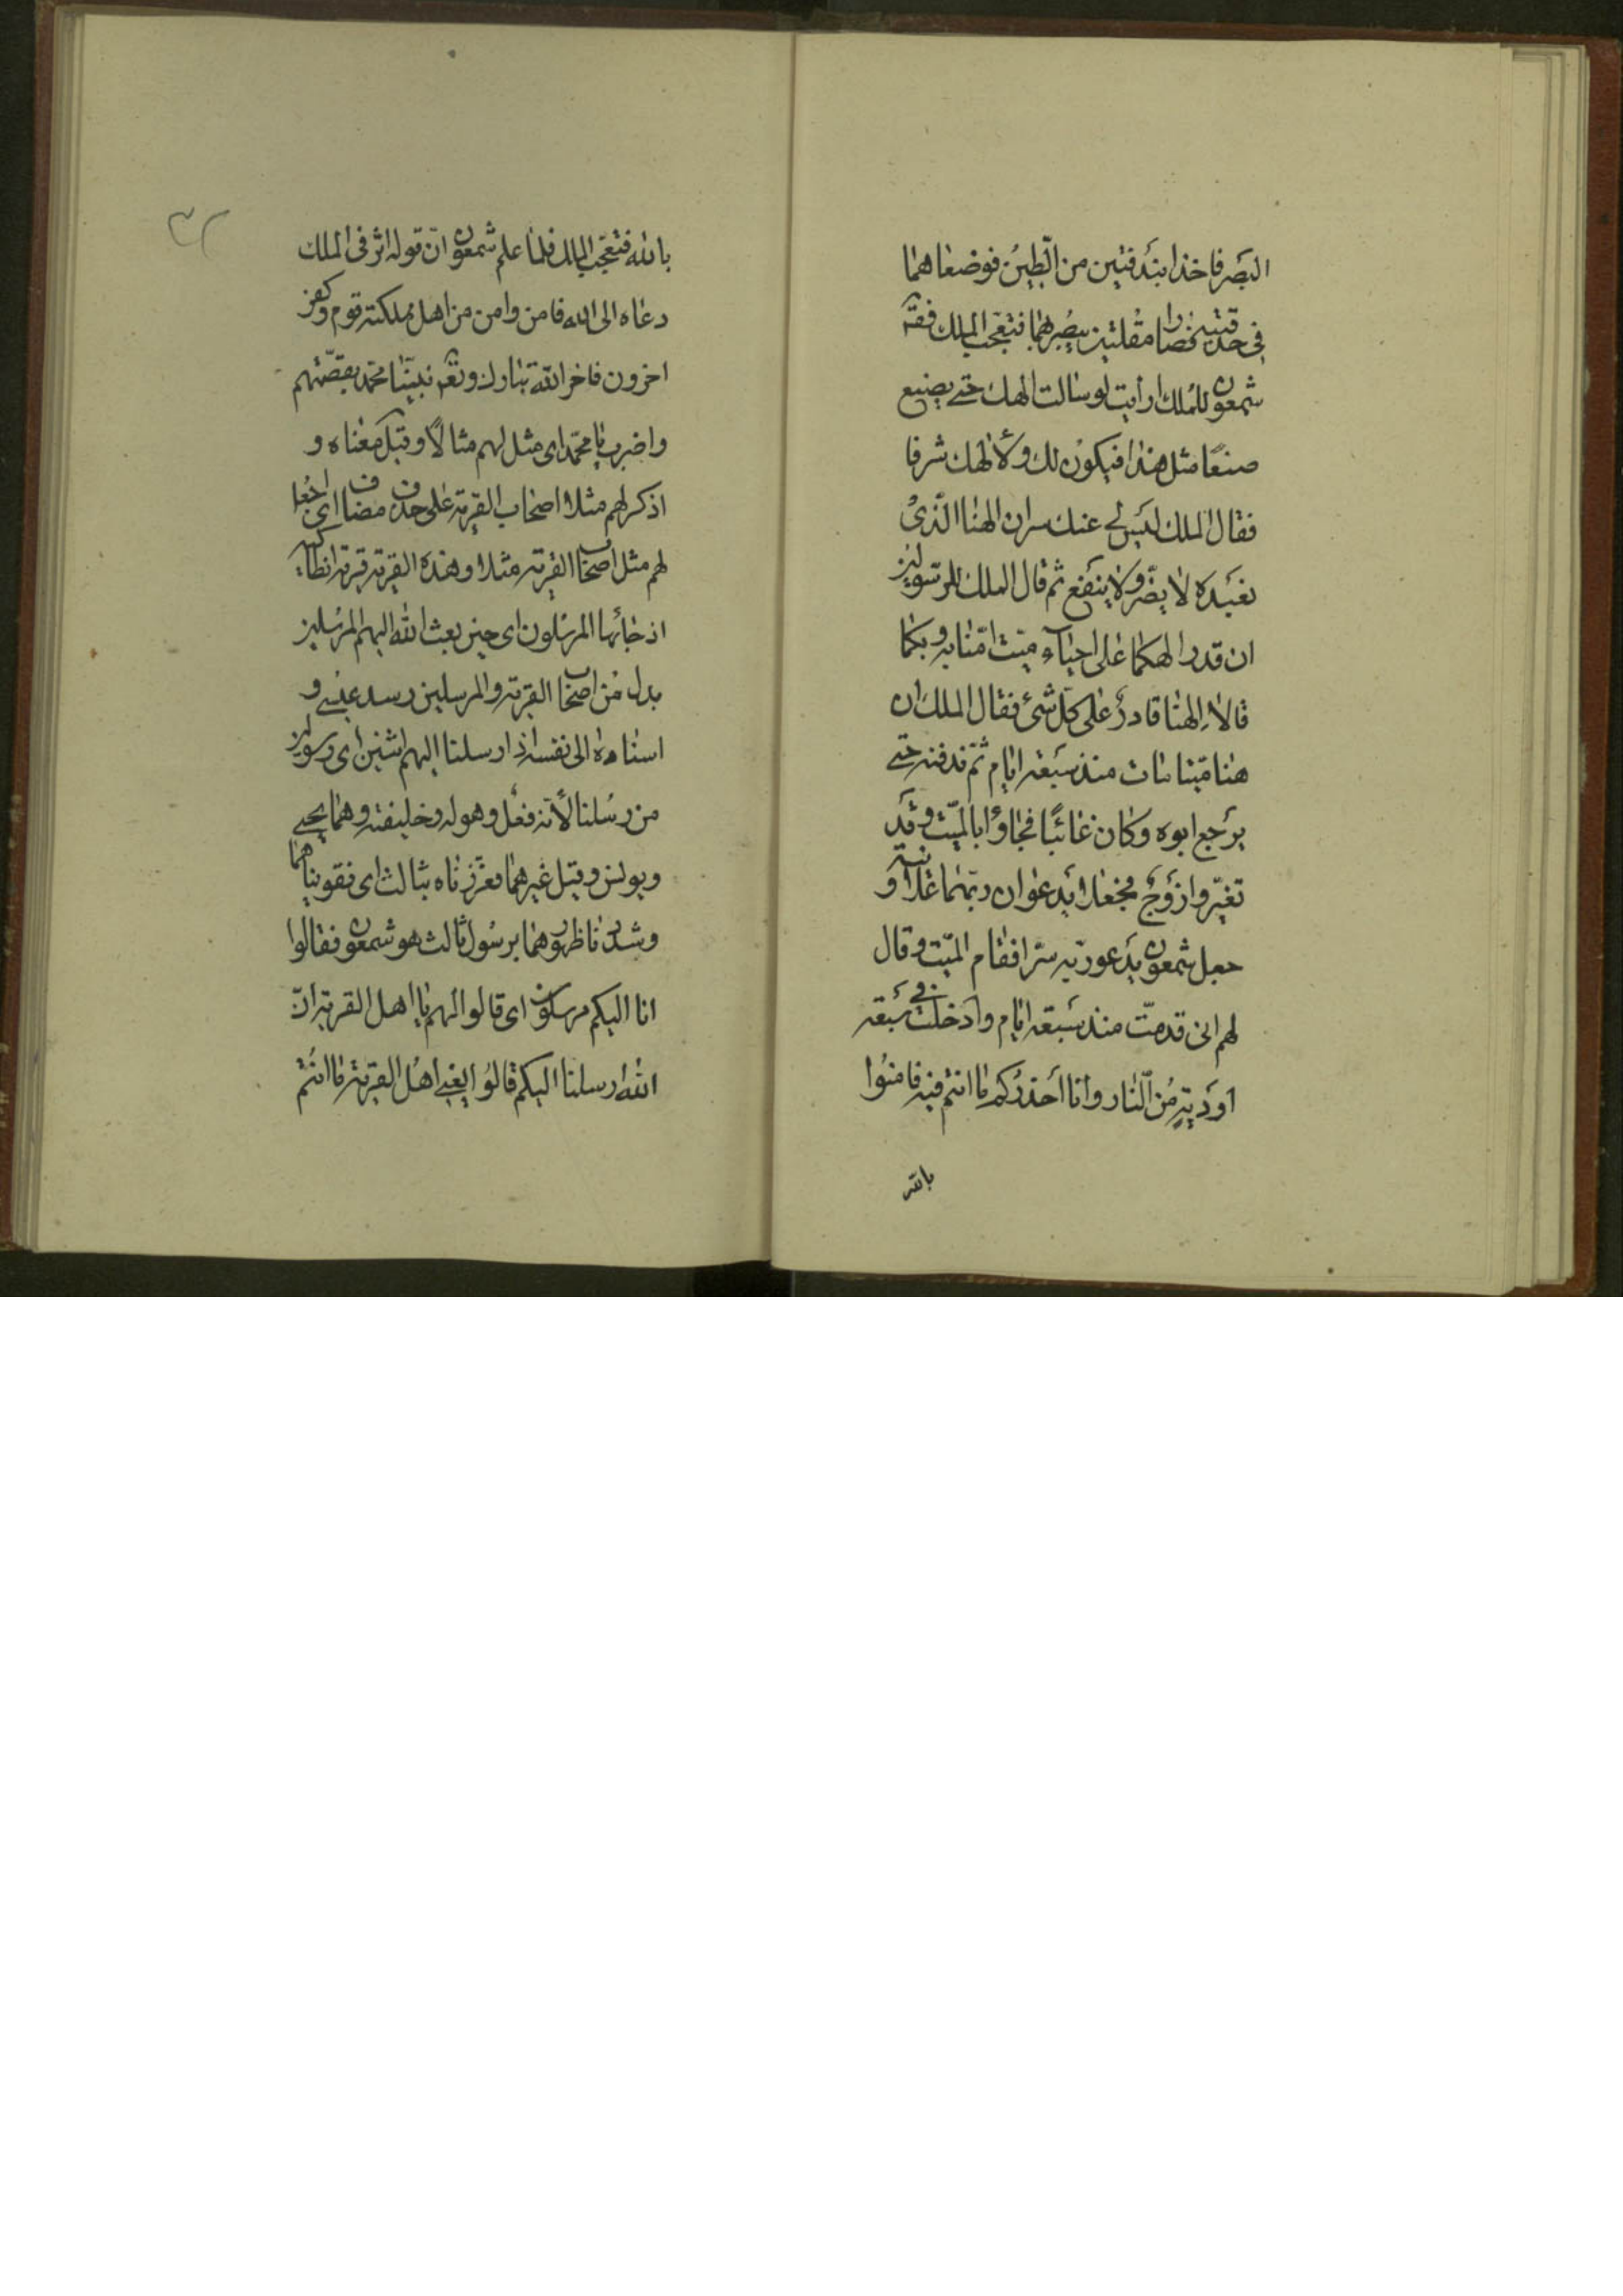 البصر فاخذا بندقتين من الطين فوضعاهما
فى حدقتيه فصارا مقلتين يبصر بهما فتعجب الملك فقال
شمعون للملك ارايت لو سالت الهك حتى يصنع
صنعًا مثل هذا فيكون لك ولألهك شرفا
فقال الملك ليس لى عنك سر ان الهنا الذى
نعبده لا يضر ولا ينفع ثم قال الملك للرسولين
ان قدر الهكما على احياء ميت امنا به وبكما
قالا الهنا قادر على كل شئ فقال الملك ان
هنا ميتا مات منذ سبعة ايام لم ندفنه حتى
يرجع ابوه وكان غائبًا فجاؤا بالميت وقد
تغير واروح فجعلا يدعوان ربهما علانية و
جعل شمعون يدعو ربه سرا فقام الميت وقال
لهم انى قد مت منذ سبعة ايام وادخلت فى سبعة
اودية من النار وانا احذركم ما انتم فيه فامنوا
بالله
٣٢
بالله فتعجب الملك فلما علم شمعون ان قوله اثر فى الملك
دعاه الى الله فامن وامن من اهل مملكته قوم وكفر
اخرون فاخبر الله تبارك وتعالى نبينا محمد بقصتهم
واضرب يا محمد اى مثل لهم مثالًا وقيل معناه و
اذكر لهم مثلا اصحاب القرية على حذف مضاف اى اجعل
لهم مثل اصحاب القرية مثلا وهذه القرية قرية انطاكيه
اذ جائها المرسلون اى حين بعث الله اليهم المرسلين
بدل من اصحاب القرية والمرسلين رسل عيسى و
اسناده الى نفسه اذ ارسلنا اليهم اثنين اى رسولين
من رسلنا لأنه فعل رسوله وخليفته وهما يحيى
ويونس وقيل غيرهما فعززناه بثالث اى فقويناهما
وشددنا ظهورهما برسول ثالث هو شمعون فقالوا
انا اليكم مرسلون اى قالوا لهم يا اهل القرية ان
الله ارسلنا اليكم قالوا يعنى اهل القرية ما انتم